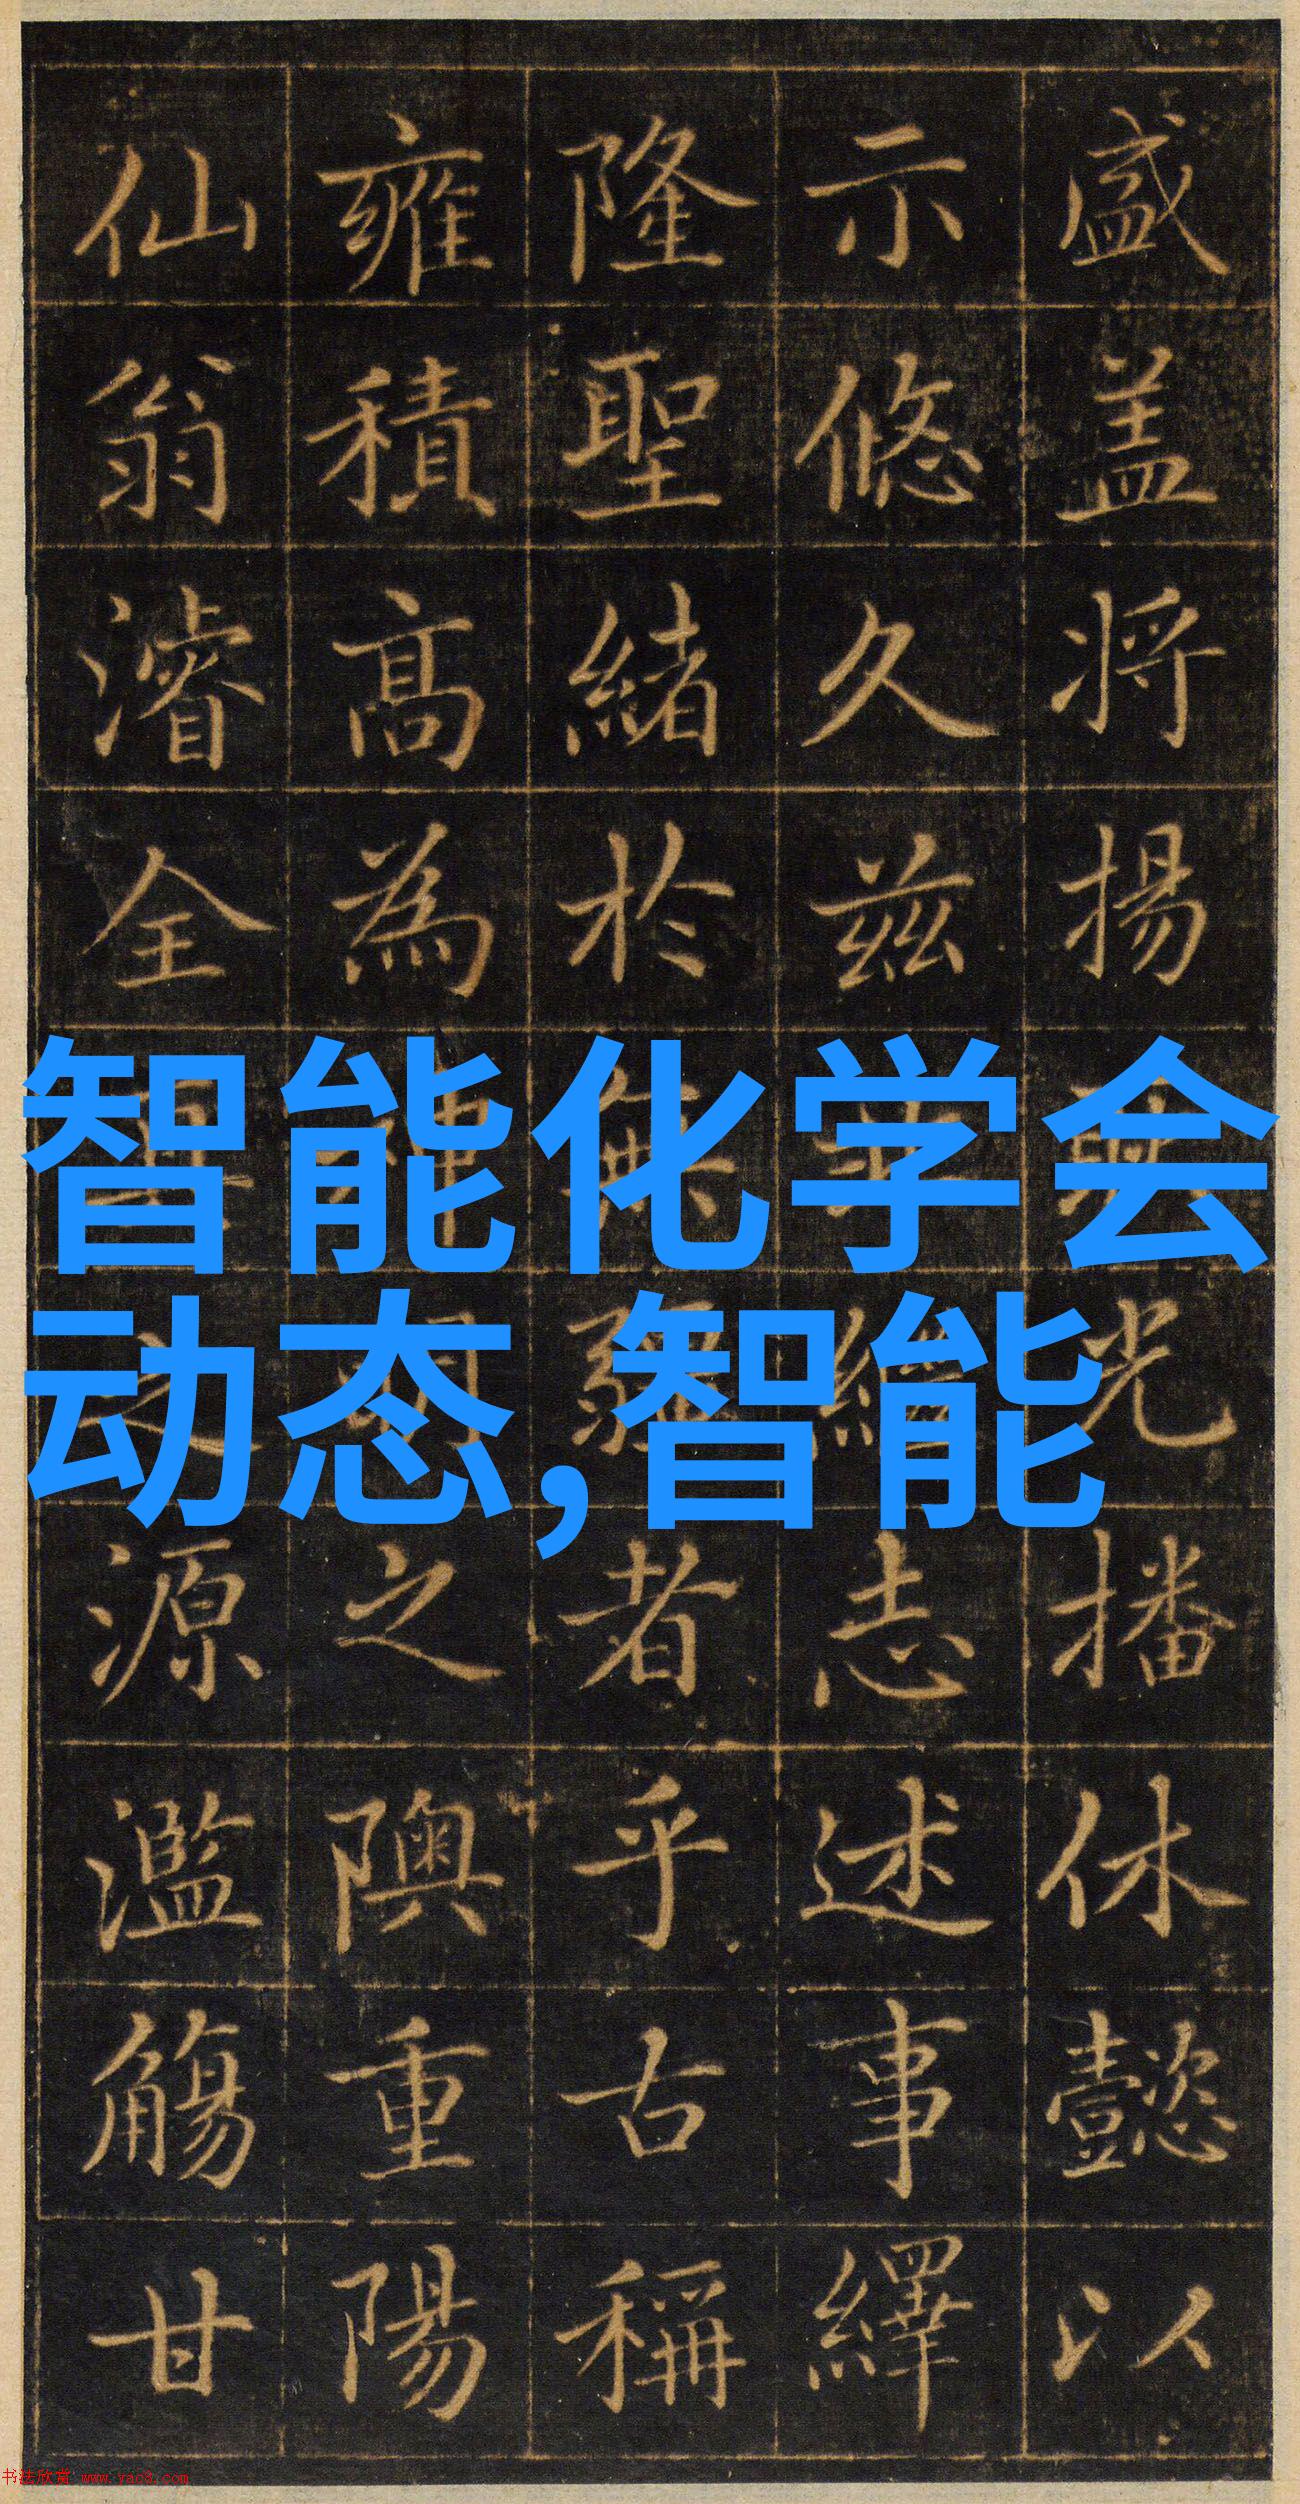 盛盖将揚光播休懿以
示悠久兹志述事繹
隆聖緒於無疆者乎古稱
雍積高為神明之隩重陽
仙翁濬全真之源濫觴甘
智能化学会
动态,智能
书法欣赏 www.yac8.com